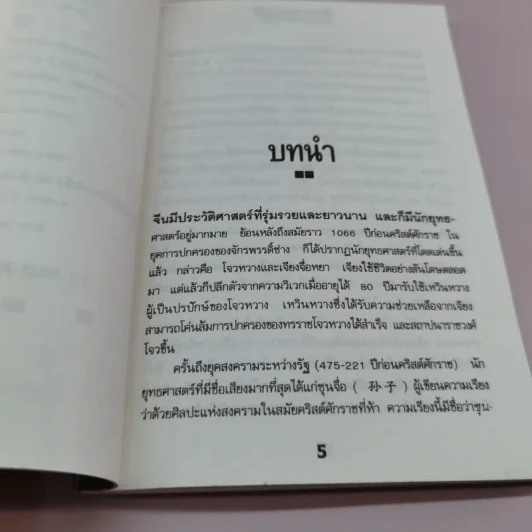 บทนำ
จีนมีประวัติศาสตร์ที่รุ่มรวยและยาวนาน และก็มีนักยุทธ-
ศาสตร์อยู่มากมาย ย้อนหลังถึงสมัยราว 1066 ปีก่อนคริสต์ศักราช ใน
ยุคการปกครองของจักรพรรดิ์ซ่าง ก็ได้ปรากฏนักยุทธศาสตร์ที่โดดเด่นขึ้น
แล้ว กล่าวคือ โจวหวางและเจียงจื่อหยา เจียงใช้ชีวิตอย่างสันโดษตลอด
มา แต่แล้วก็ปลีกตัวจากความวิเวกเมื่ออายุได้ 80 ปีมารับใช้เหวินหวาง
ผู้เป็นปรปักษ์ของโจวหวาง เหวินหวางซึ่งได้รับความช่วยเหลือจากเจียง
สามารถโค่นล้มการปกครองของทรราชโจวหวางได้สำเร็จ และสถาปนาราชวงศ์
โจวขึ้น
ครั้นถึงยุคสงครามระหว่างรัฐ (475-221 ปีก่อนคริสต์ศักราช) นัก
ยุทธศาสตร์ที่มีชื่อเสียงมากที่สุดได้แก่ซุนจื่อ ( 孙子 ) ผู้เขียนความเรียง
ว่าด้วยศิลปะแห่งสงครามในสมัยคริสต์ศักราชที่ห้า ความเรียงนี้มีชื่อว่าซุน-
5